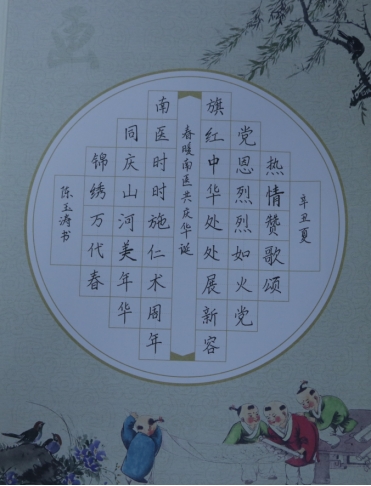 画
辛丑夏
热情赞歌颂
党恩烈烈如火党
旗红中华处处展新容
春暖南医共庆华诞
南医时时施仁术周年
同庆山河美年华
锦绣万代春
陈玉涛书